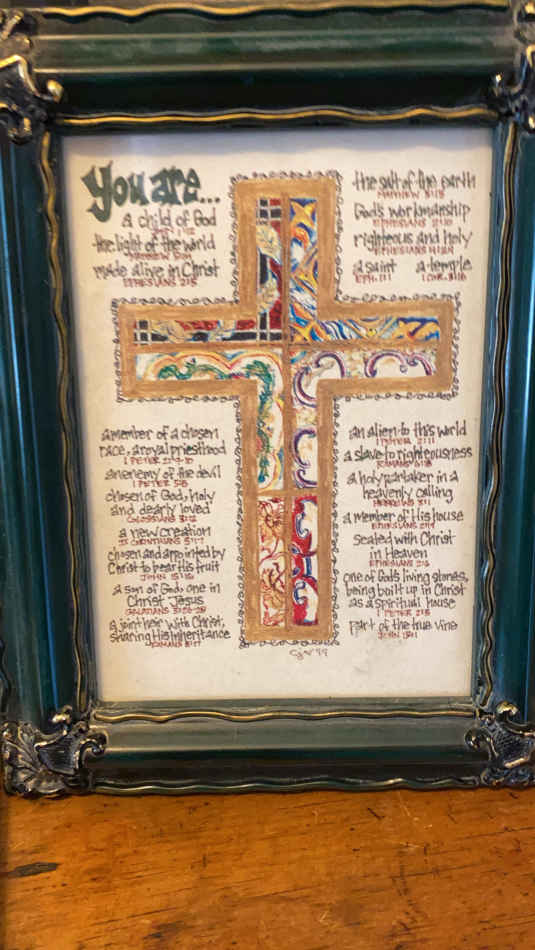 You are...
a child of God
JOHN 1:12
the light of the world
MATTHEW 5:14
made alive in Christ
EPHESIANS 2:5
the salt of the earth
MATTHEW 5:13
God's workmanship
EPHESIANS 2:10
righteous and holy
EPHESIANS 4:24
a saint a temple
EPH. 1:1 1 COR. 3:16
a member of a chosen
race, a royal priesthood
1 PETER 2:9-10
an enemy of the devil
1 PETER 5:8
chosen of God, holy
and dearly loved
COLOSSIANS 3:12
a new creation
II CORINTHIANS 5:17
chosen and appointed by
Christ to bear His fruit
JOHN 15:16
a son of God; one in
Christ Jesus
GALATIANS 3:26-28
a joint heir with Christ,
sharing His inheritance
ROMANS 8:17
an alien to this world
1 PETER 2:11
a slave to righteousness
ROMANS 6:18
a holy partaker in a
heavenly calling
HEBREWS 3:1
a member of His house
EPHESIANS 2:19
seated with Christ
in Heaven
EPHESIANS 2:6
one of God's living stones,
being built up in Christ
as a spiritual house
1 PETER 2:5
part of the true vine
JOHN 15:1